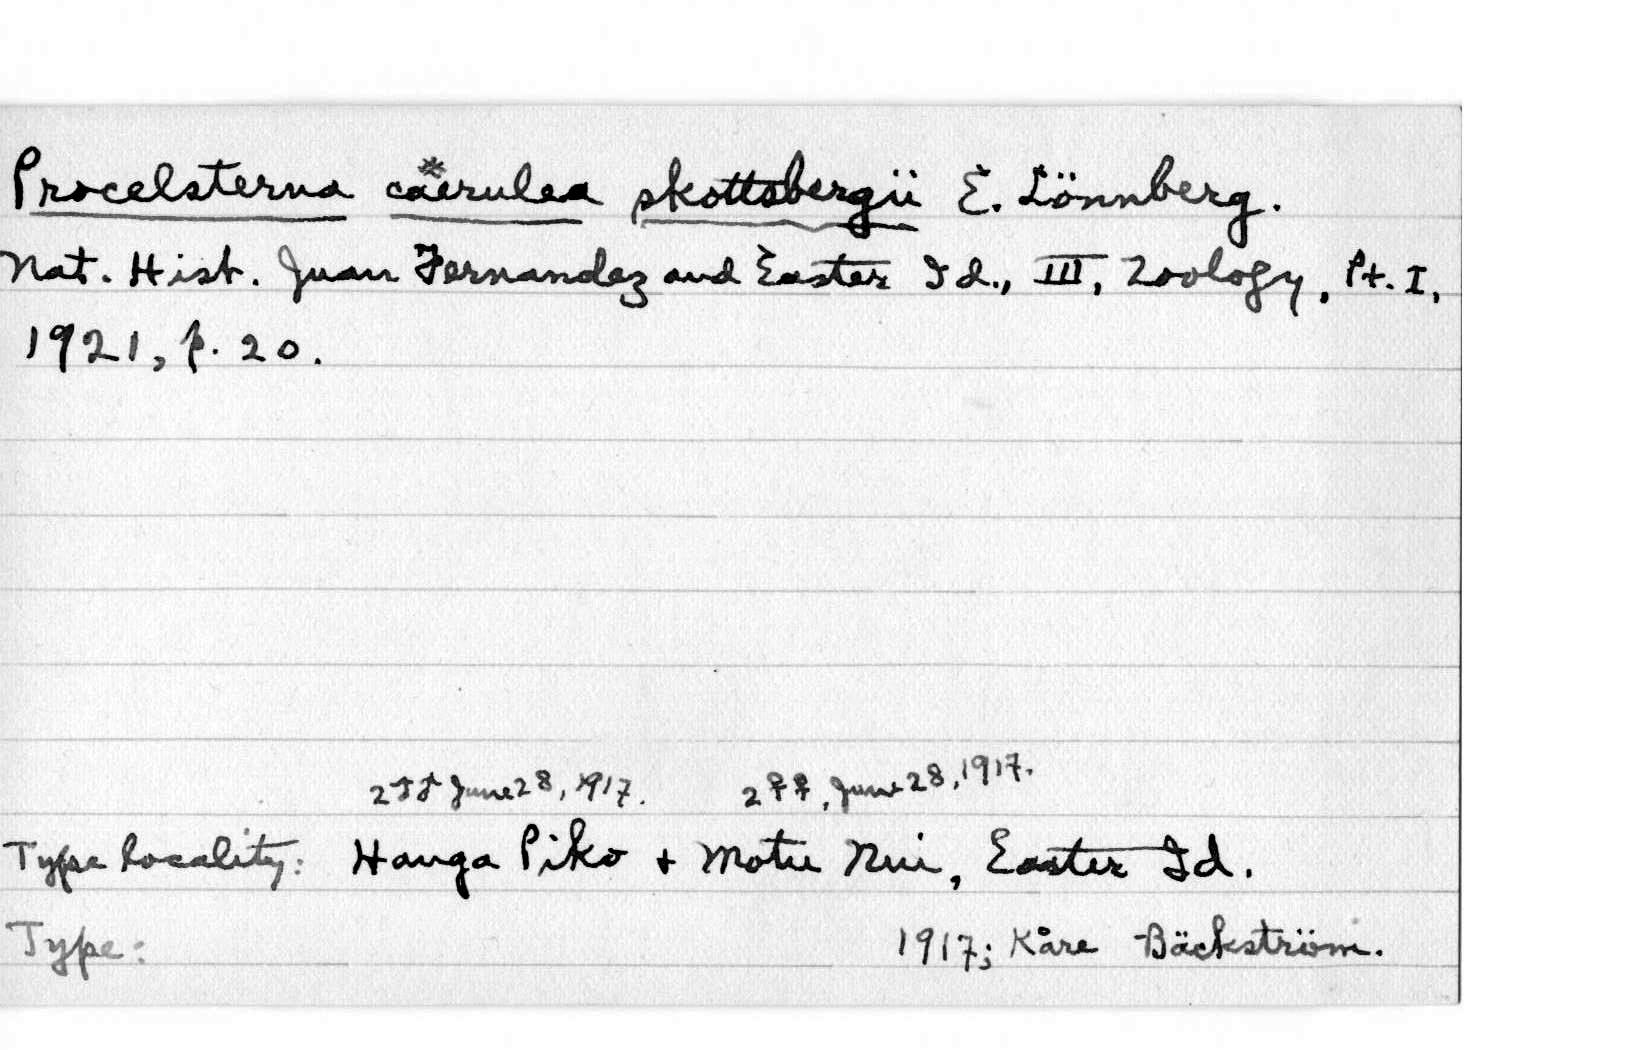 Procelsterna caerulea skottsbergii E. Lönnberg.
Nat. Hist. Juan Fernandez and Easter Id., III, Zoology, Pt. I,
1921, p. 20.
2 ♂♂ June 28, 1917. 2 ♀♀, June 28, 1917.
Type locality: Hanga Piko + Motu Nui, Easter Id.
Type: 1917; Kåre Bäckström.